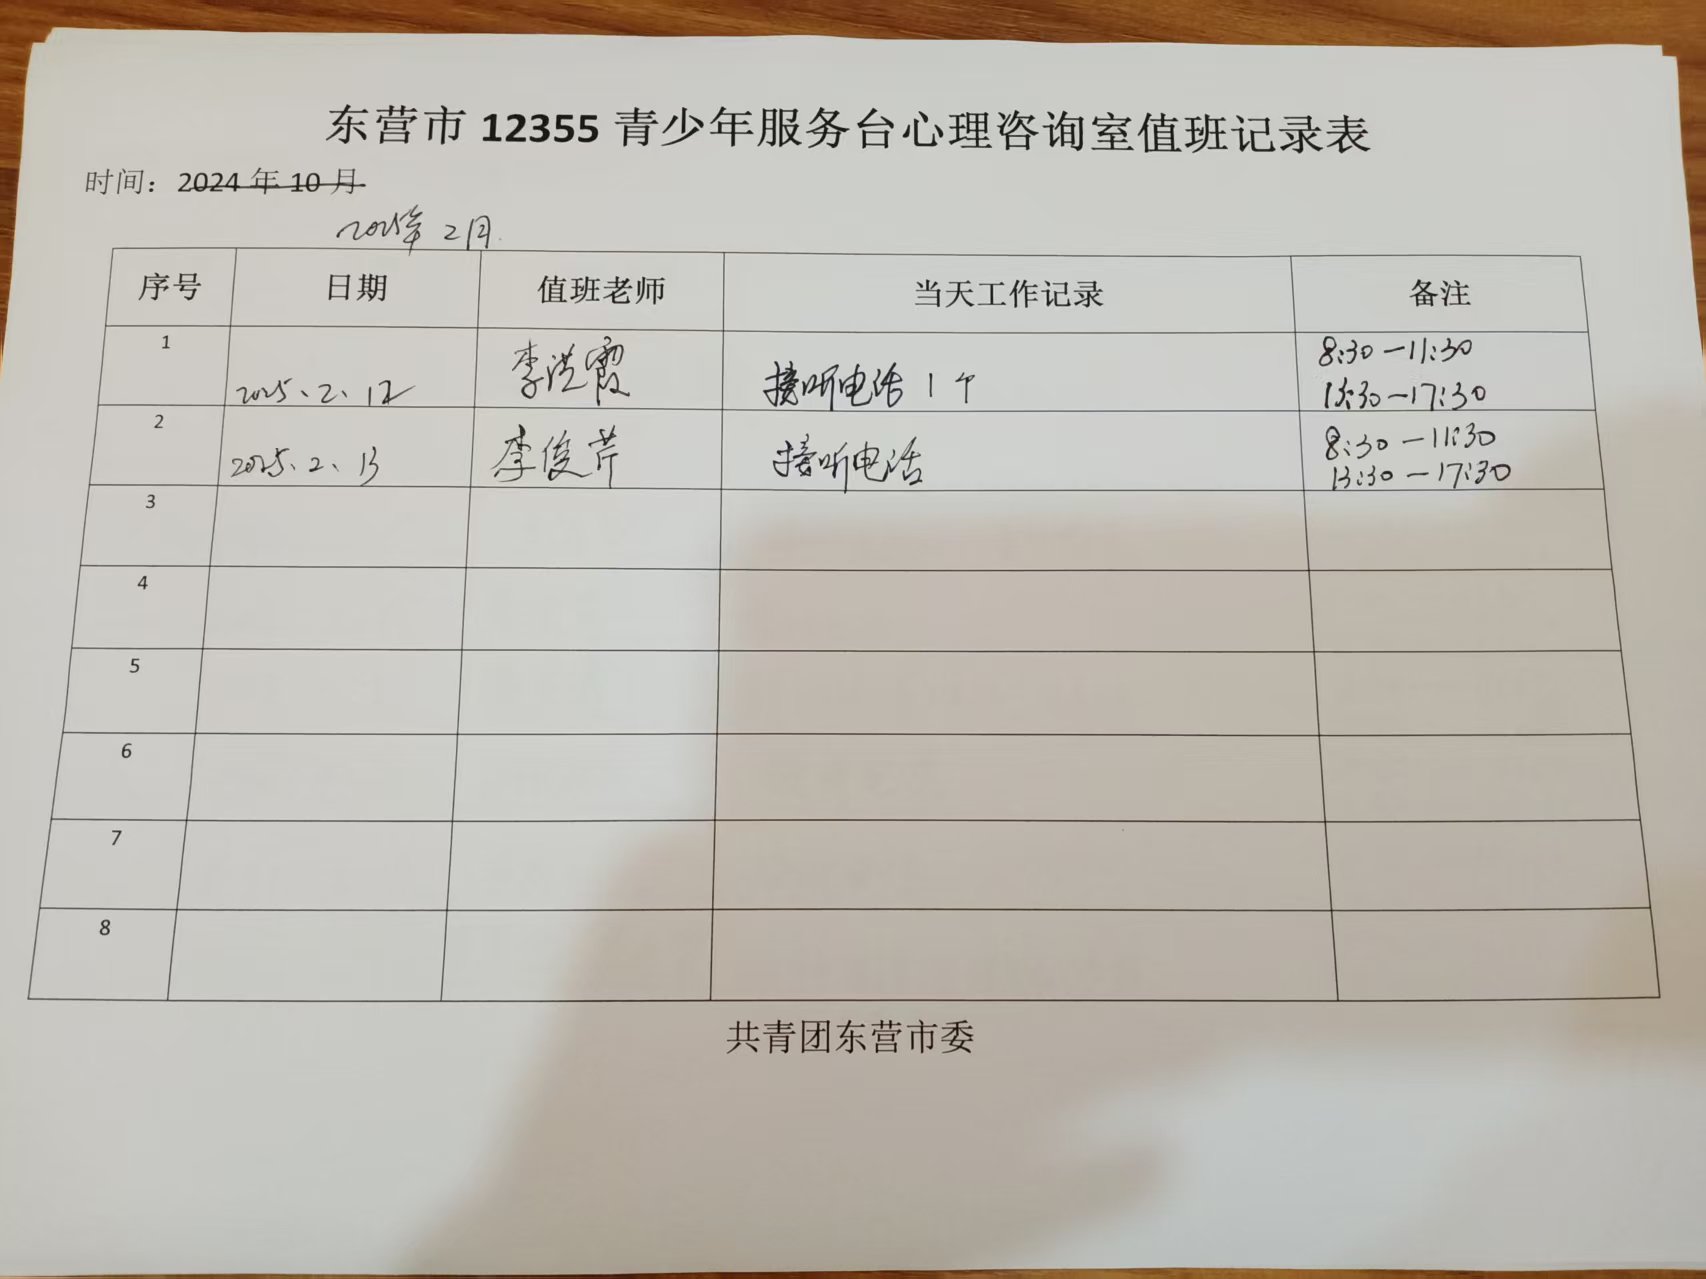 东营市 12355 青少年服务台心理咨询室值班记录表
时间：2024 年 10 月
2025年 2月.
序号 日期 值班老师 当天工作记录 备注
1 2025、2、12 李洪霞 接听电话 1个 8:30—11:30
13:30—17:30
2 2025、2、13 李俊芹 接听电话 8:30—11:30
13:30—17:30
3
4
5
6
7
8
共青团东营市委